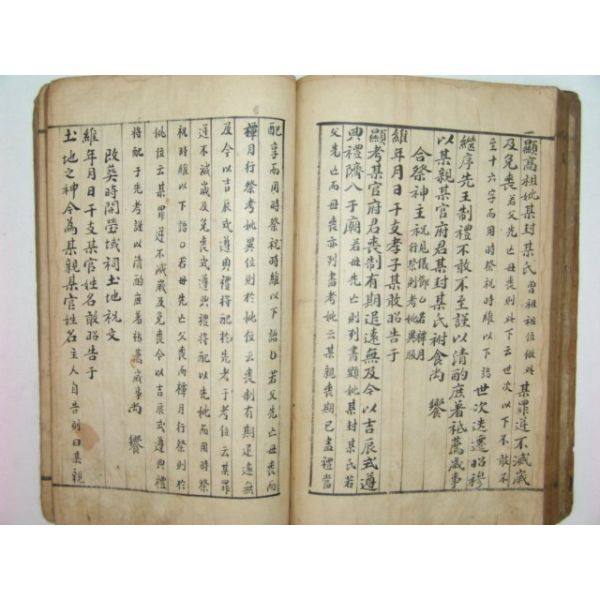 顯高祖妣某封某氏 曾祖祖位倣此 某罪逆不滅歲
及免喪 若父先亡母喪則 下云世次以下不敢不
至十六字而用時祭祝時維以下語 世次迭遷昭穆
繼序先王制禮不敢不至謹以清酌庶羞祗薦歲事
以某親某官府君某封某氏祔食尚 饗
合祭神主祝 見儀節 若禫月行祭則考妣異服
維年月日干支孝子某敢昭告于
顯考某官府君喪制有期追遠無及今以吉辰式遵
典禮隮入于廟 若母先亡則列書顯妣某封某氏若
父先亡而母喪亦列書考妣云某親喪期已盡禮當
配享而用時祭祝時維以下語 若父先亡母喪而
禫月行祭考妣異位則於妣位云喪制有期追遠無
及今以吉辰式遵典禮將配於先考于考位云某罪
逆不滅歲及免喪式遵典禮將配以先妣而用時祭
祝時維以下語 若母先亡父喪而禫月行祭則於
妣位云某罪逆不滅歲及免喪今以吉辰式遵典禮
將配于先考謹以清酌庶羞祗薦歲事尚 饗
改葬時開塋域祠土地祝文
維年月日干支某官姓名敢昭告于
土地之神今為某親某官姓名 主人自告則曰某親